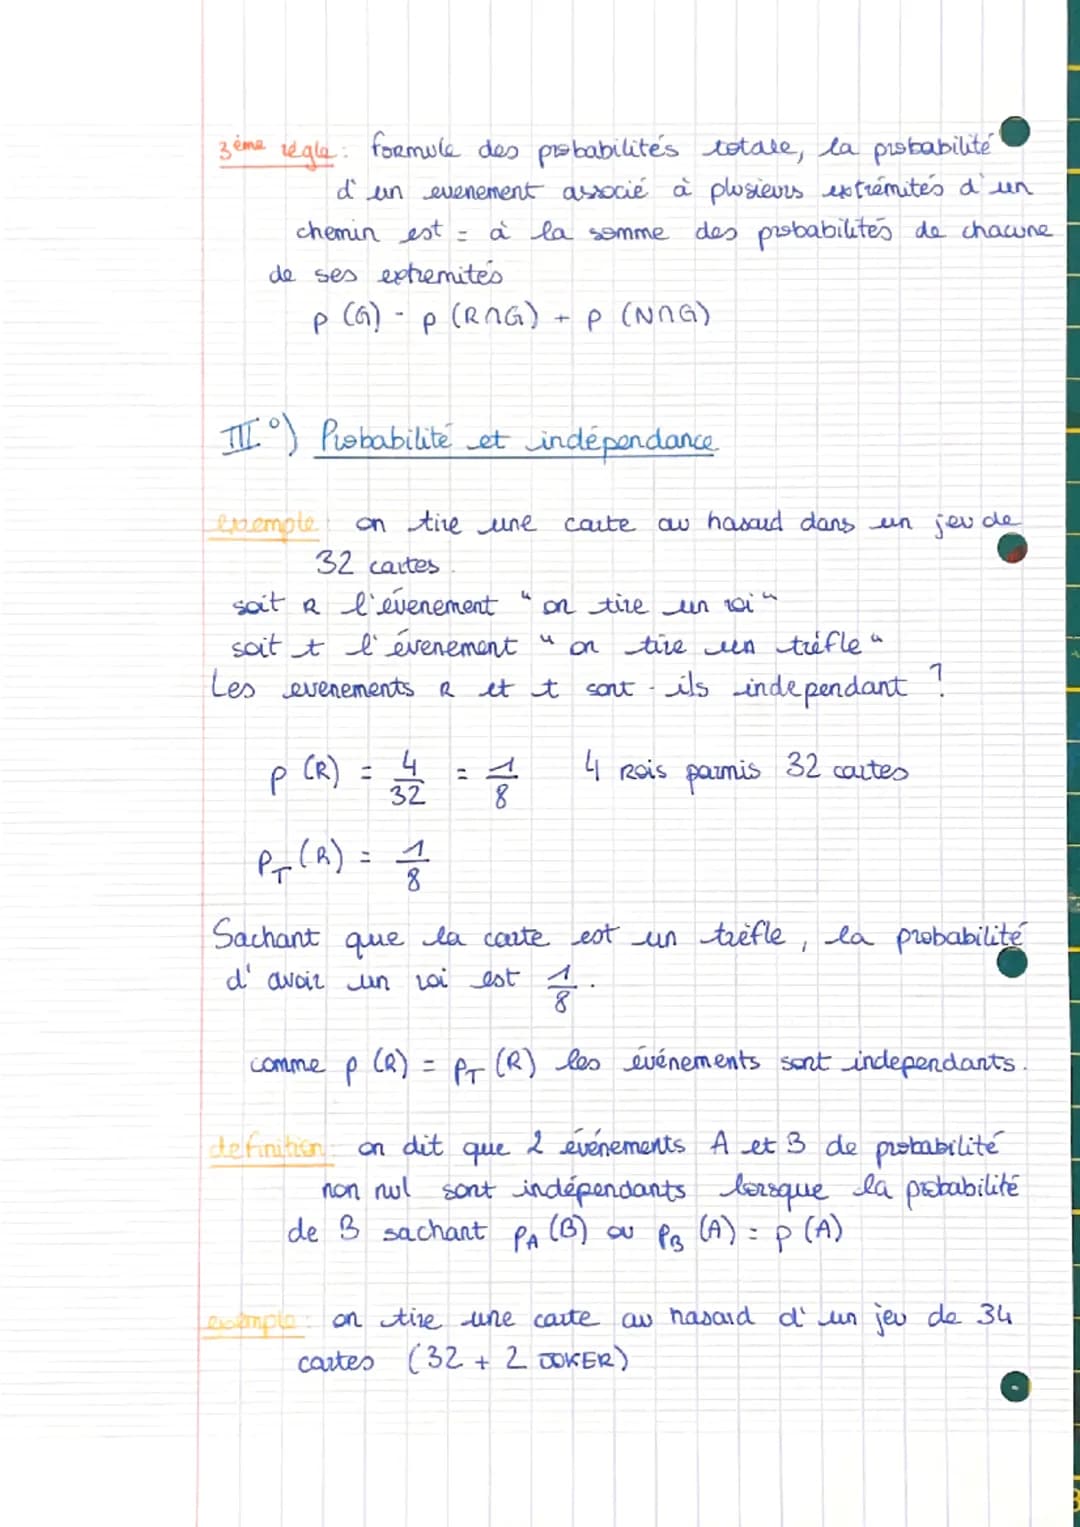 3ème règle : formule des probabilités totale, la probabilité
d'un evenement associé à plusieurs extrémités d'un
chemin est = à la somme des probabilités de chacune
de ses extremités
p (G) - p (R∩G) + p (N∩G)
III°) Probabilité et indépendance
exemple : on tire une carte au hasard dans un jeu de
32 cartes.
soit R l'évenement "on tire un roi"
soit t l'évenement "on tire un tréfle"
Les evenements R et t sont-ils independant ?
p (R) = 4/32 = 1/8 4 Rois parmis 32 cartes
p_T (R) = 1/8
Sachant que la carte est un trèfle, la probabilité
d'avoir un roi est 1/8.
comme p (R) = p_T (R) les événements sont independants.
definition : on dit que 2 événements A et B de probabilité
non nul sont indépendants lorsque la probabilité
de B sachant p_A (B) ou p_B (A) = p (A)
exemple : on tire une carte au hasard d'un jeu de 34
cartes (32 + 2 JOKER)